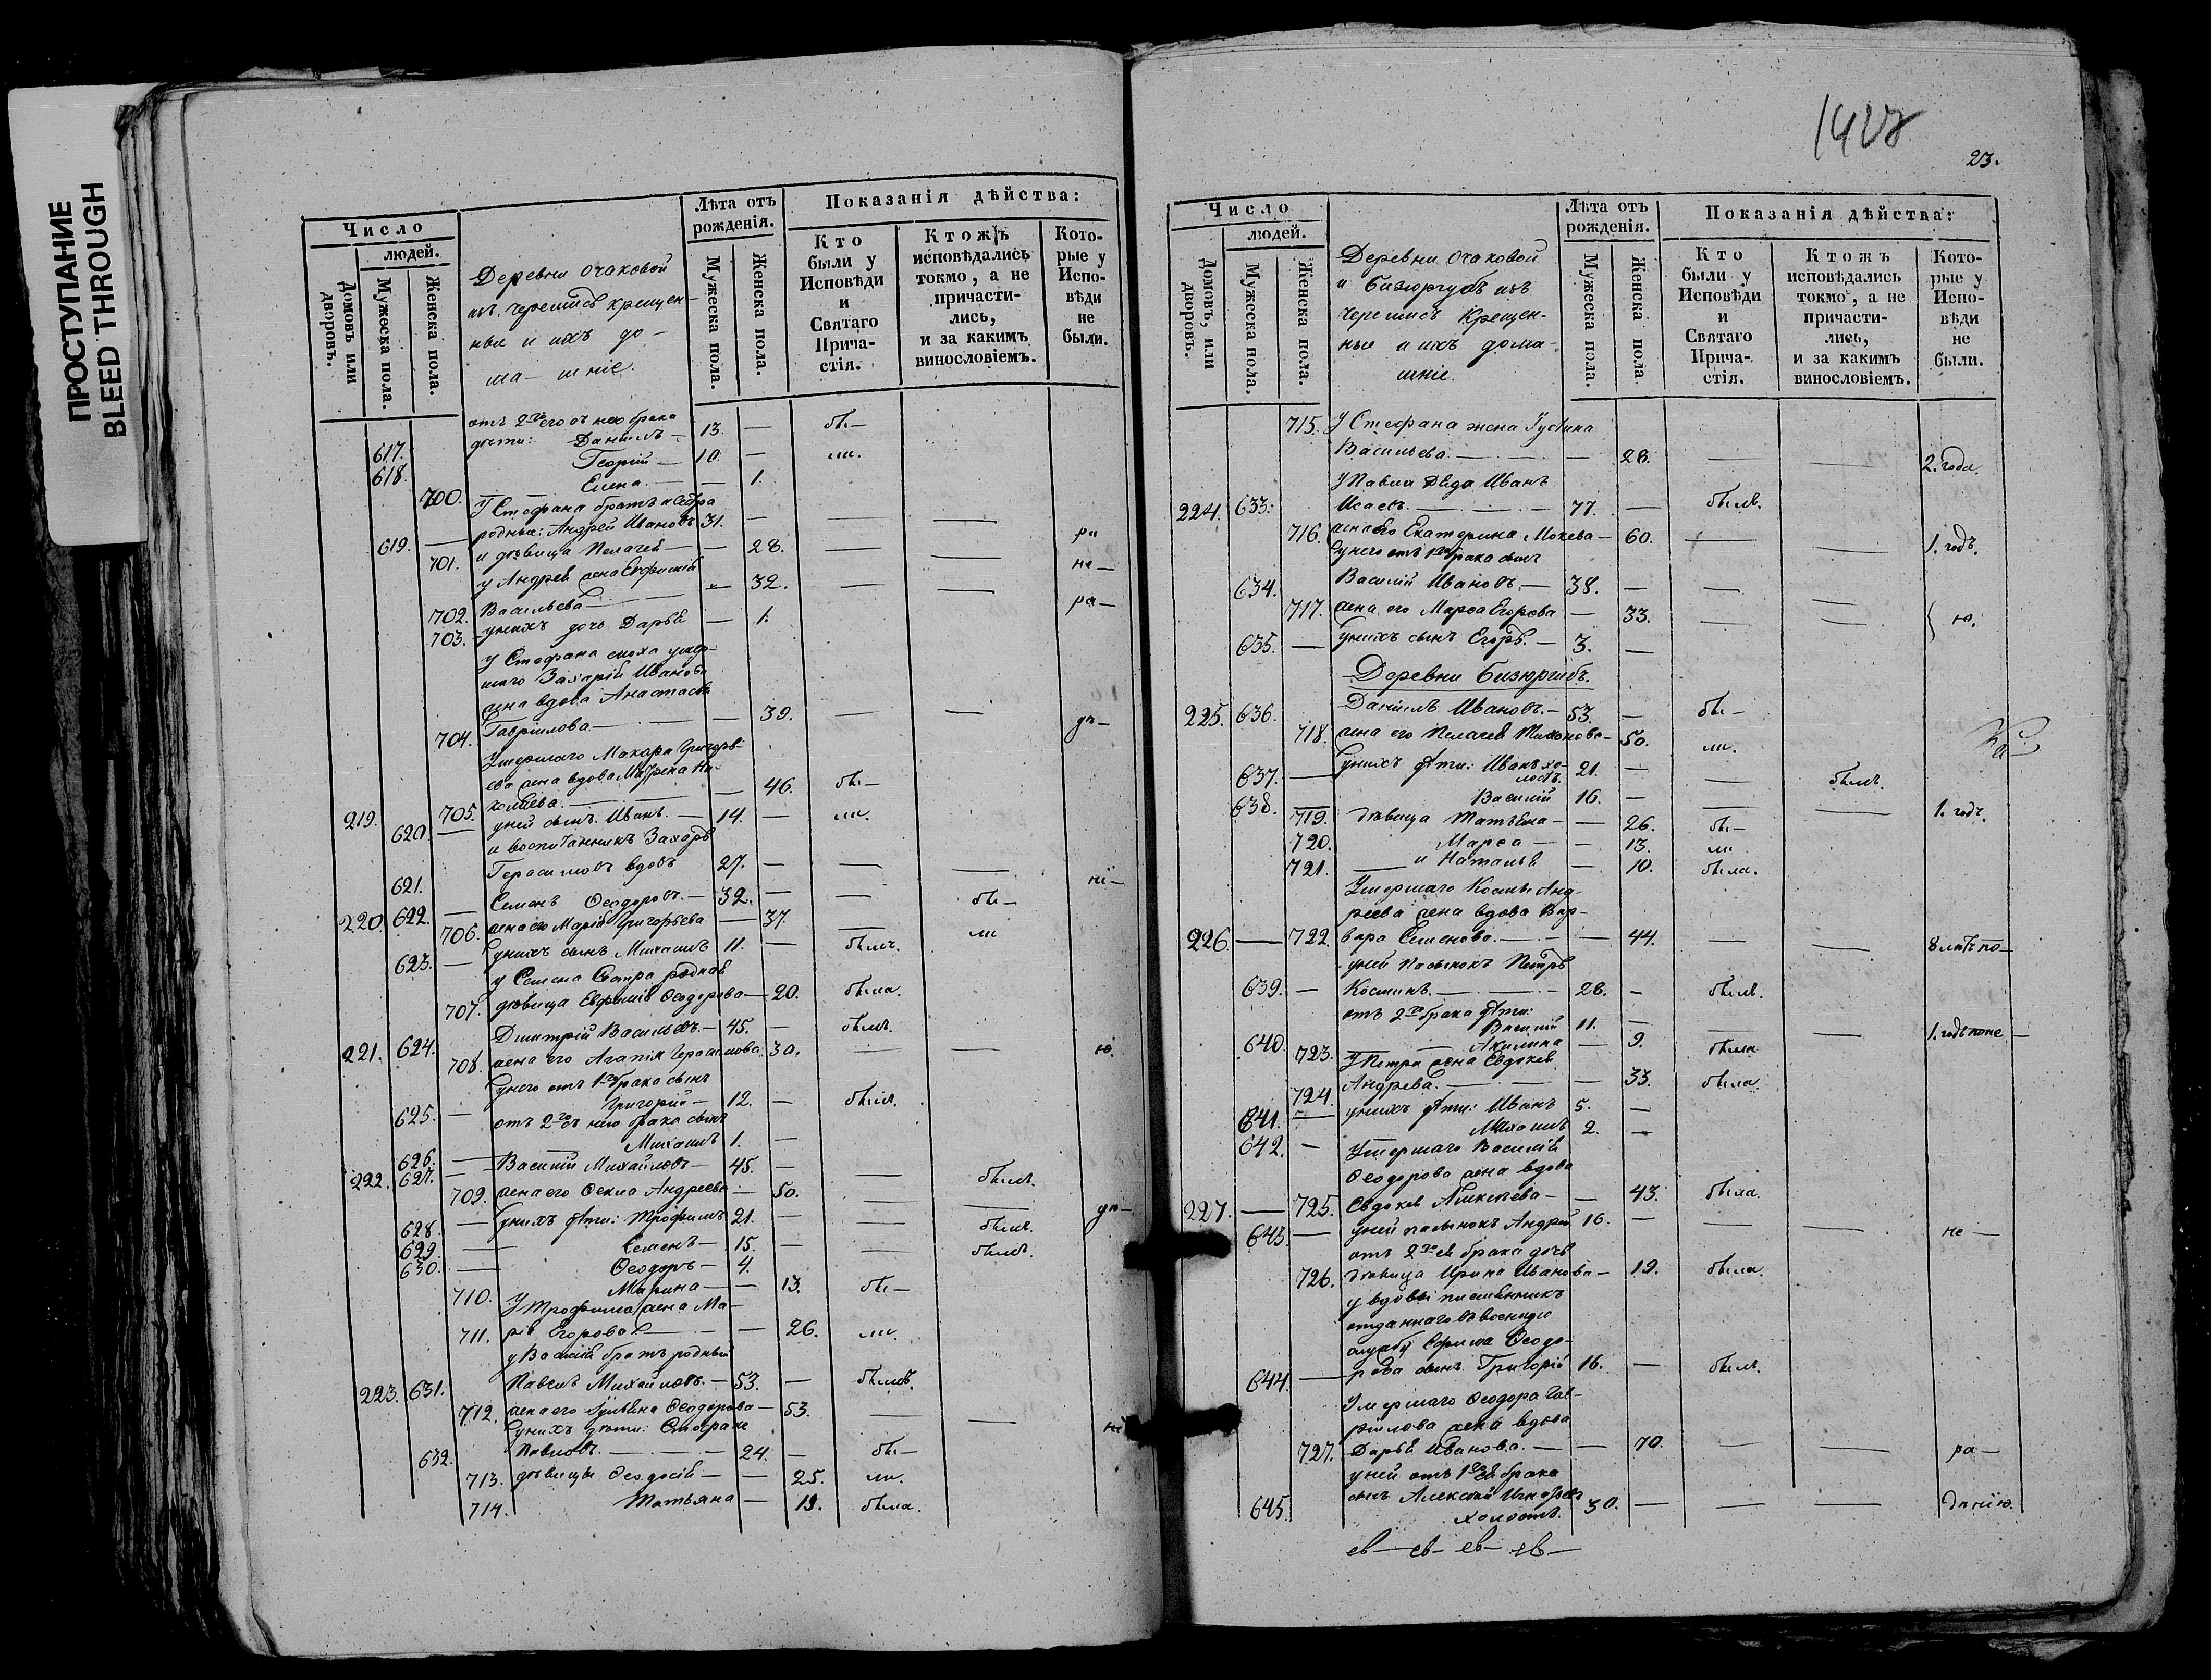 ПРОСТУПАНИЕ
BLEED THROUGH
Число
людей.
Домовъ или дворовъ.
Мужеска пола.
Женска пола.
Деревни Очаковой
изъ черемисъ крещен-
ные и ихъ до-
ма- шніе.
Лѣта отъ рожденія.
Мужеска пола.
Женска пола.
Показанія дѣйства:
Кто были у Исповѣди и Святаго Прича-стія.
Ктожъ исповѣдались токмо, а не причасти-лись, и за какимъ винословіемъ.
Кото-рые у Испо-вѣди не были.
отъ 2го его съ нею брака
617. дѣти: Даніилъ — 13. — бы —
618. Георгій — 10. — ли.
700. Елена. — — 1.
У Стефана братъ и сестра
619. — родные: Андрей Ивановъ 31. — — —
701. и дѣвица Пелагея — — 28. — —
у Андрея жена Евфимія
702. Васильева — — 32. — —
703. у нихъ дочь Дарья — 1.
у Стефана сноха умер-
шаго Захарія Иванова
жена вдова Анастасія
704. Гавріилова. — — 39. — —
Умершаго Макара Григорь-
ева жена вдова Матрена Ни-
219. 705. колаева. — — 46. бы —
620. — у ней сынъ Иванъ. — 14. — ли.
и воспитанникъ Захаръ
621. Герасимовъ вдовъ 27. — — —
220. 622. — Семенъ Ѳеодоровъ. — 32. — — бы —
706. жена его Марія Григорьева — 37. — ли
623. — у нихъ сынъ Михаилъ 11. — былъ.
у Семена сестра родная
707. дѣвица Евфимія Ѳеодорова — 20. была.
221. 624. Дмитрій Васильевъ. — 45. — былъ.
708. жена его Агапія Герасимова. 30. — — ю.
у него отъ 1го брака сынъ
625. — Григорій — 12. — былъ.
отъ 2го съ нею брака сынъ
626. — Михаилъ 1. —
222. 627. — Василій Михайловъ — 45. — — былъ.
709. жена его Ѳекла Андреева — 50. — —
628. — у нихъ дѣти: Трофимъ 21. — — былъ.
629. — Семенъ — 15. — — былъ.
630. — Ѳеодоръ — 4.
710. Марина — — 13. бы —
У Трофима жена Ма-
711. рія Егорова — — 26. ли.
у Василія братъ родный
223. 631. Павелъ Михайловъ. — 53. — былъ.
712. жена его Ѳеодорова — 53. — —
у нихъ дѣти: Стефанъ
632. Павловъ. — — 24. — бы —
713. дѣвицы Ѳеодосія — — 25. ли.
714. Татьяна — 19. была.
23.
Число
людей.
Домовъ, или дворовъ.
Мужеска пола.
Женска пола.
Деревни Очаковой
и Бизюргубъ изъ
черемисъ крещен-
ные и ихъ дома-
шніе.
Лѣта отъ рожденія.
Мужеска пола.
Женска пола
Показанія дѣйства:
Кто были у Исповѣди и Святаго Прича-стія.
Ктожъ исповѣдались токмо, а не причасти-лись, и за какимъ винословіемъ.
Кото-рые у Испо-вѣди не были.
715. У Стефана жена Іустина
Васильева. — — 28. — — 2. года.
У Павла дядя Иванъ
224. 633. Исаевъ. — — 77. — былъ.
716. жена его Екатерина Мокева — 60. — — 1. годъ.
у него отъ 1го брака сынъ
634. Василій Ивановъ. — 38. — — —
717. жена его Марѳа Егорова — 33. — — ю.
635. — у нихъ сынъ Егоръ. — 3. —
Деревни Бизюргубъ.
225. 636. Даніилъ Ивановъ. — 53. — бы —
718. жена его Пелагея Тихонова — 50. ли.
637. — у нихъ дѣти: Иванъ хо-
лостъ. 21. — — былъ.
638. — Василій 16. — — — 1. годъ.
719. дѣвица Татьяна — — 26. бы —
720. Марѳа — — 13. ли
721. — и Наталья — 10. была.
Умершаго Космы Анд-
реева жена вдова Вар-
226. — 722. вара Семенова. — — 44. — — 8 лѣтъ по —
у ней пасынокъ Петръ
639. — Косминъ. — — 28. — былъ.
отъ 2го брака дѣти:
640. Василій 11. — — — 1. годъ по не —
723. — Акилина — 9. была
У Петра жена Евдокея
724. Андреева. — — 33. была.
641. — у нихъ дѣти: Иванъ 5. —
642. — Михаилъ 2. —
Умершаго Василія
Ѳеодорова жена вдова
227. — 725. Евдокея Алексѣева — — 43. была.
643. — у ней пасынокъ Андрей 16. — — — не —
отъ 2го ея брака дочь
726. дѣвица Ирина Иванова — 19. была.
у вдовы племянникъ
отданнаго въ военную
службу Ефима Ѳеодо-
644. — рова сынъ Григорій 16. — былъ.
Умершаго Ѳеодора Гав-
ріилова жена вдова
727. Дарья Иванова. — — 70. — — ра —
у ней отъ 1го ея брака
645. сынъ Алексѣй
холостъ. 30. — — — дѣнію.